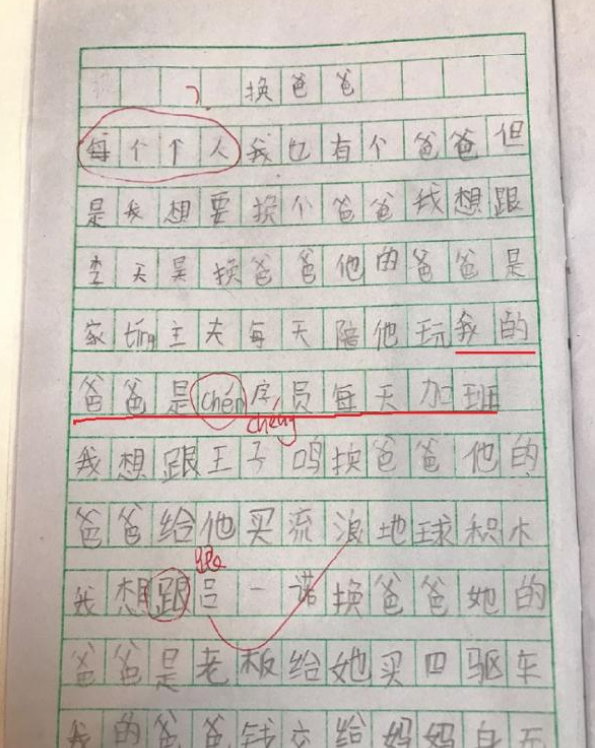 换爸爸
每个个人我也有个爸爸但
是我想要换个爸爸我想跟
李天昊换爸爸他的爸爸是
家tíng主夫每天陪他玩我的
爸爸是chén序员每天加班
chéng
我想跟王子鸣换爸爸他的
爸爸给他买流浪地球积木
跟
我想跟吕一诺换爸爸她的
爸爸是老板给她买四驱车
我的爸爸钱交给妈妈自己